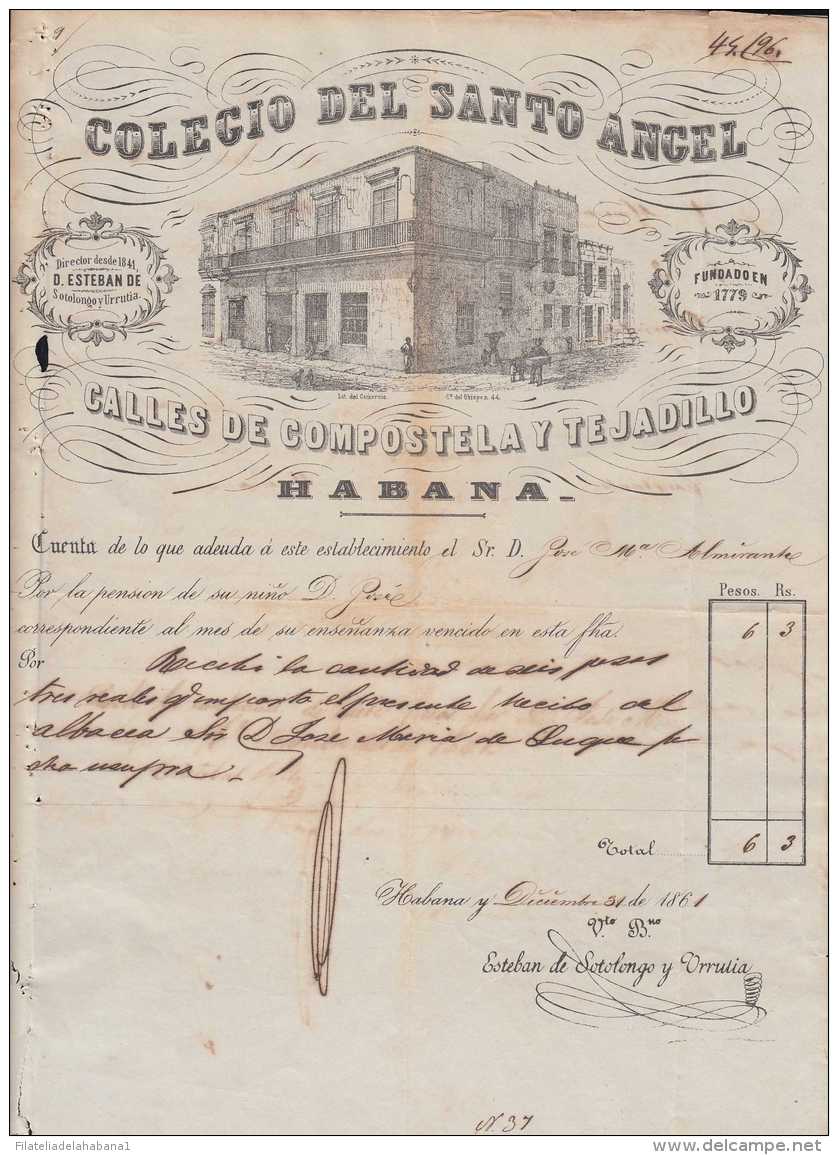 9
44. 196.
COLEGIO DEL SANTO ANGEL
Director desde 1841
D. ESTEBAN DE
Sotolongo y Urrutia.
FUNDADO EN
1779
Lit. del Comercio.
Ca. del Obispo n. 44.
CALLES DE COMPOSTELA Y TEJADILLO
HABANA.
Cuenta de lo que adeuda á este establecimiento el Sr. D. José Ma. Almirante
Por la pension de su niño D. José
Pesos. Rs.
correspondiente al mes de su enseñanza vencido en esta fha. 6 3
Por Recibi la cantidad de seis pesos
tres reales q. importa el presente recibo del
albacea Sor. D. Jose Maria de Luque
Total 6 3
Habana y Diciembre 31 de 1861
Vto. Bno.
Esteban de Sotolongo y Urrutia
N. 37
Filateliadelahabana1
www.delcampe.net